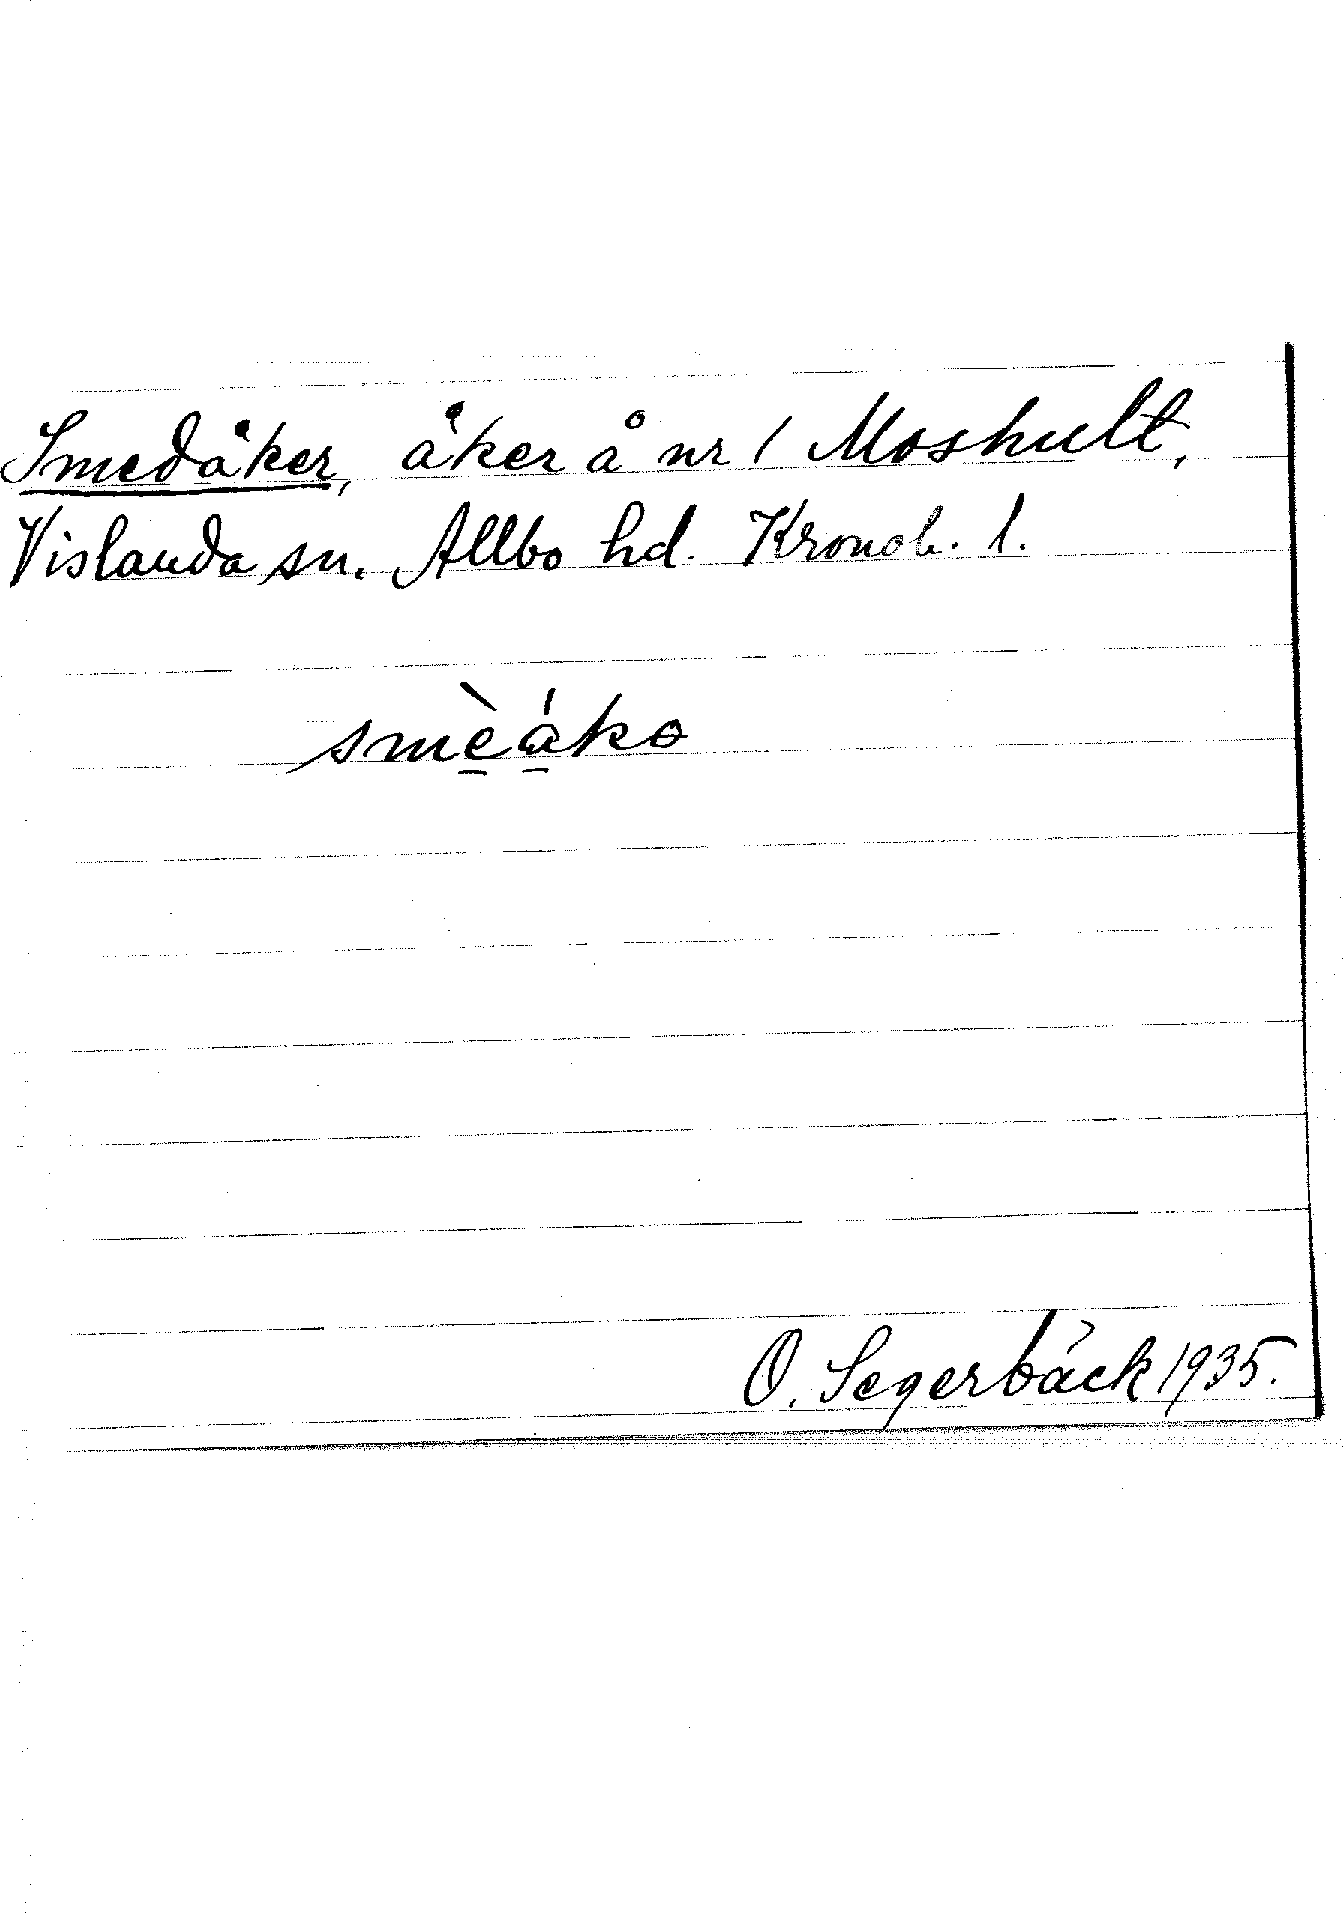 Smedåker, åker å nr 1 Moshult,
Vislanda sn. Allbo hd. Kronob. l.
smèákɵ
O. Segerbäck 1935.